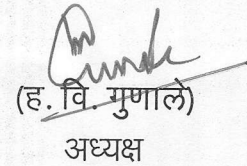 (ह. वि. गुणाले)
अध्यक्ष